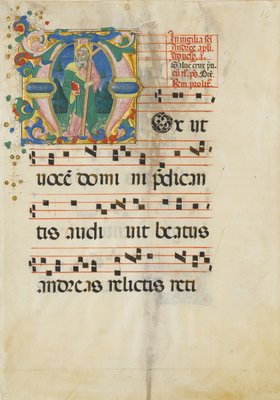 In vigilia sci
andree apli
Salue crux p̄ti
M ox ut
uocē domi ni p̄dican
tis audi uit beatus
andreas relictis reti